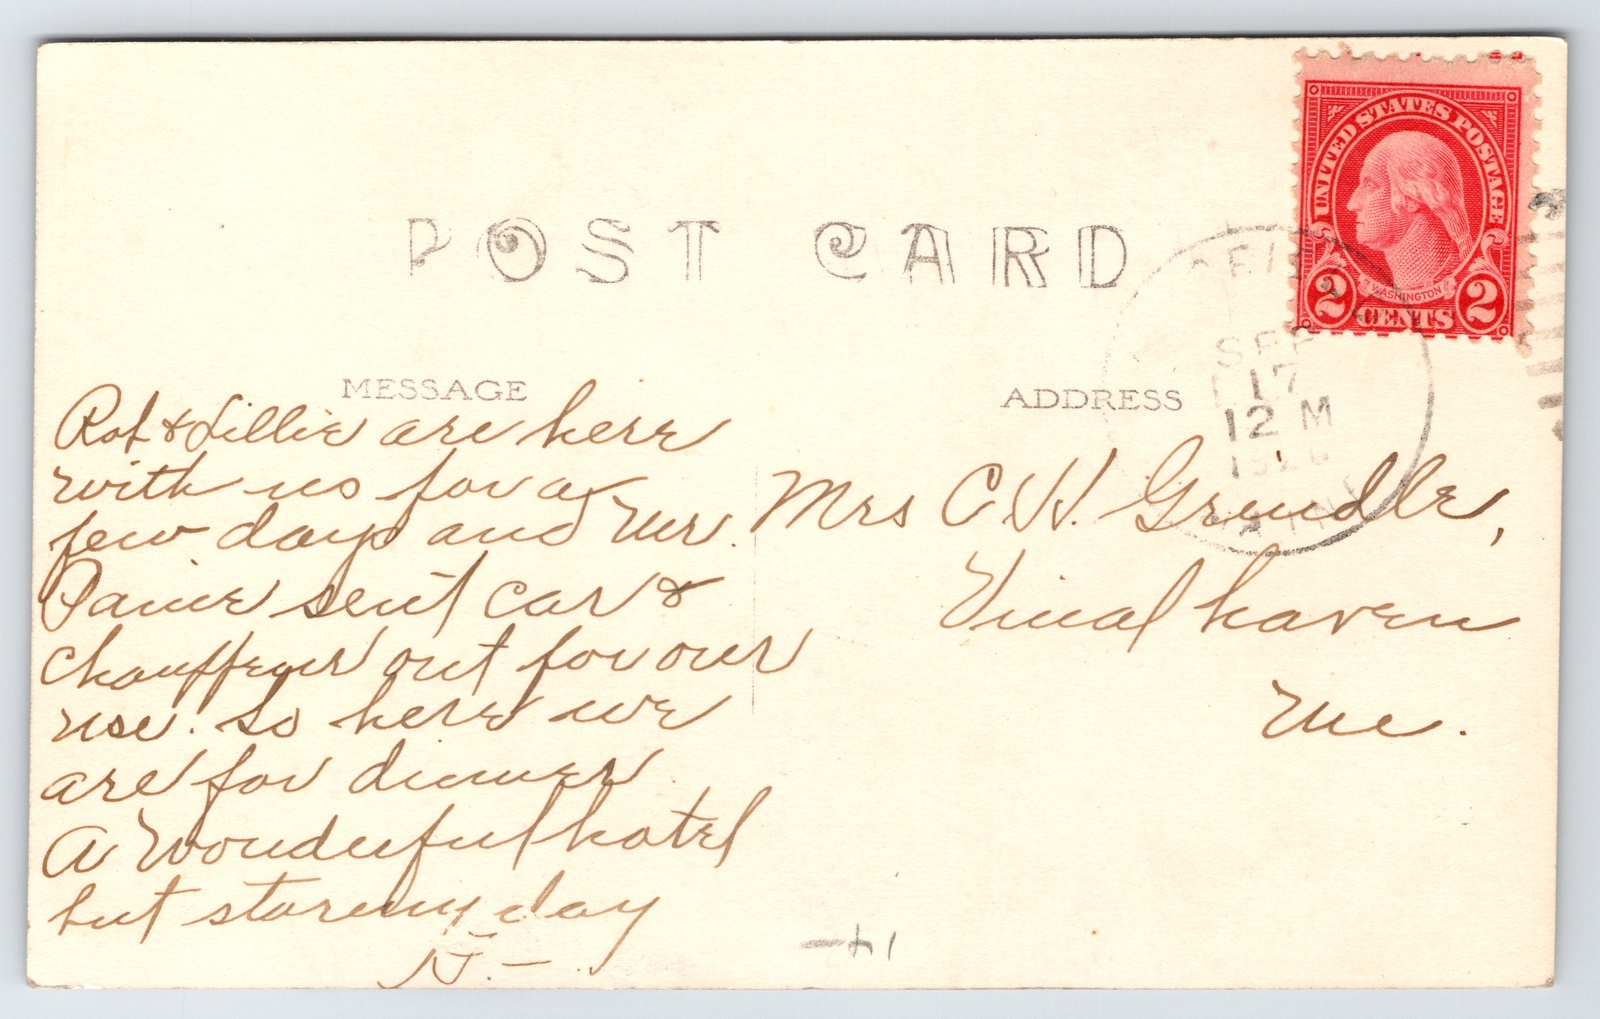 POST CARD
UNITED STATES POSTAGE
WASHINGTON
2 CENTS 2
SEP
17
12 M
MESSAGE
ADDRESS
Rob & Lillie are here
with us for a
few days and Mr.
Paine sent car &
chauffeur out for our
use. So here we
are for dinner
A Wonderful hotel
but stormy day
Mrs C. H. Grindle,
Vinal haven
Me.